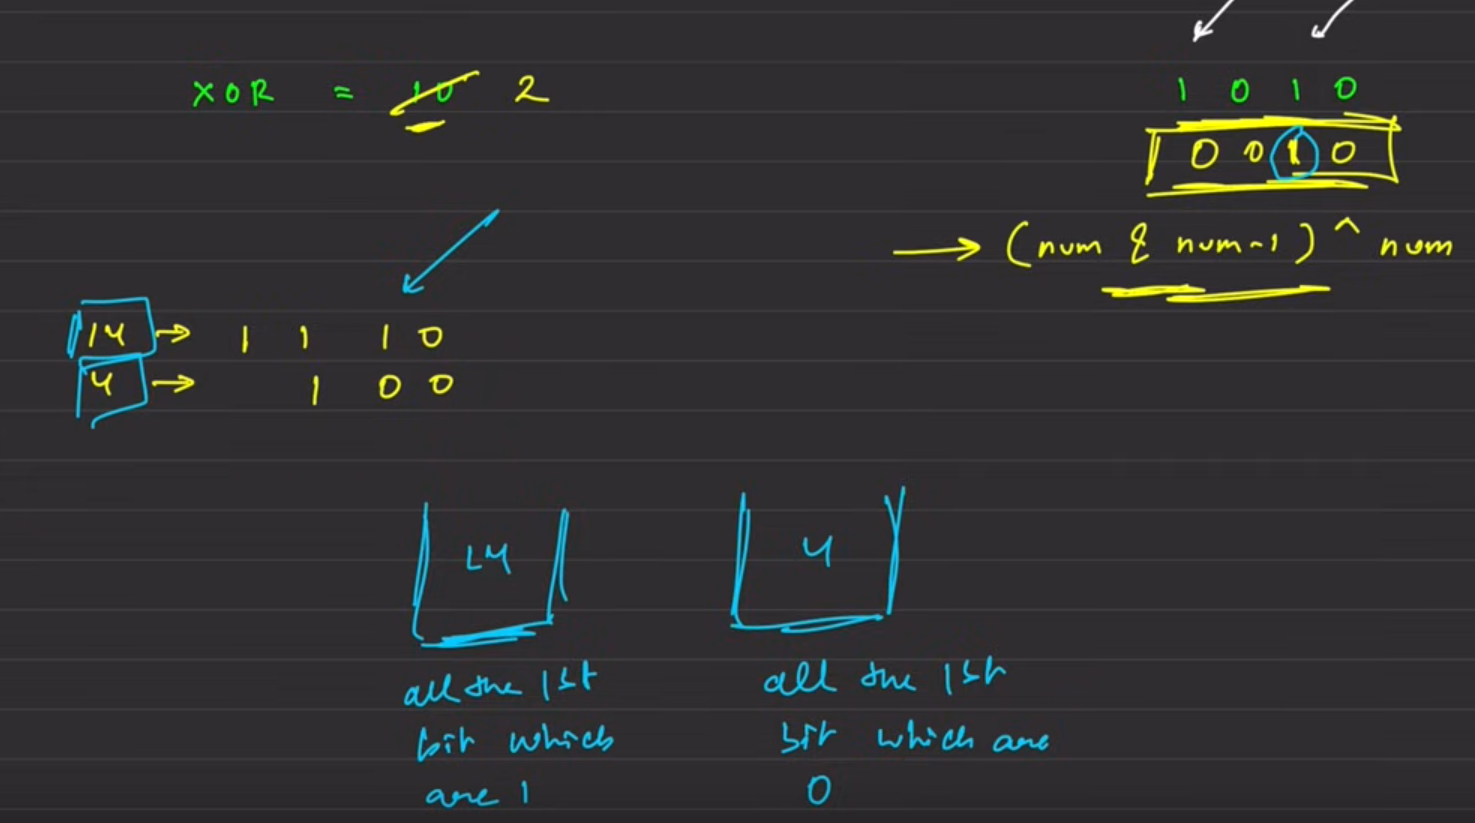 XOR = 10 2
1 0 1 0
0 0 1 0
(num & num-1) ^ num
14 → 1 1 1 0
4 → 1 0 0
14
4
all the 1st
bit which
are 1
all the 1st
bit which are
0